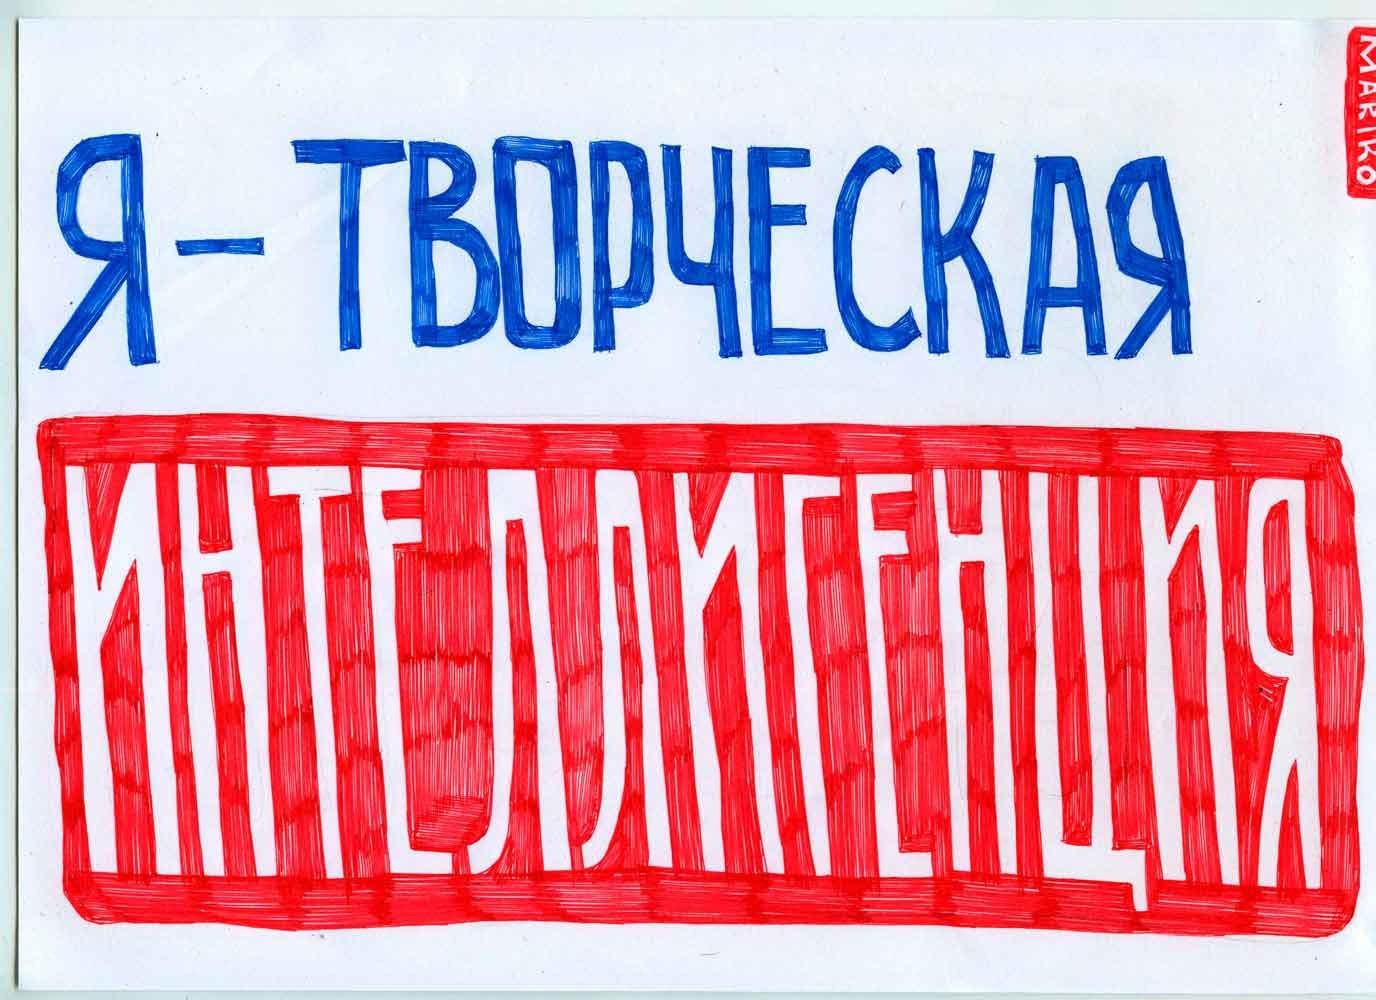 Я – ТВОРЧЕСКАЯ
ИНТЕЛЛИГЕНЦИЯ
MARIKO